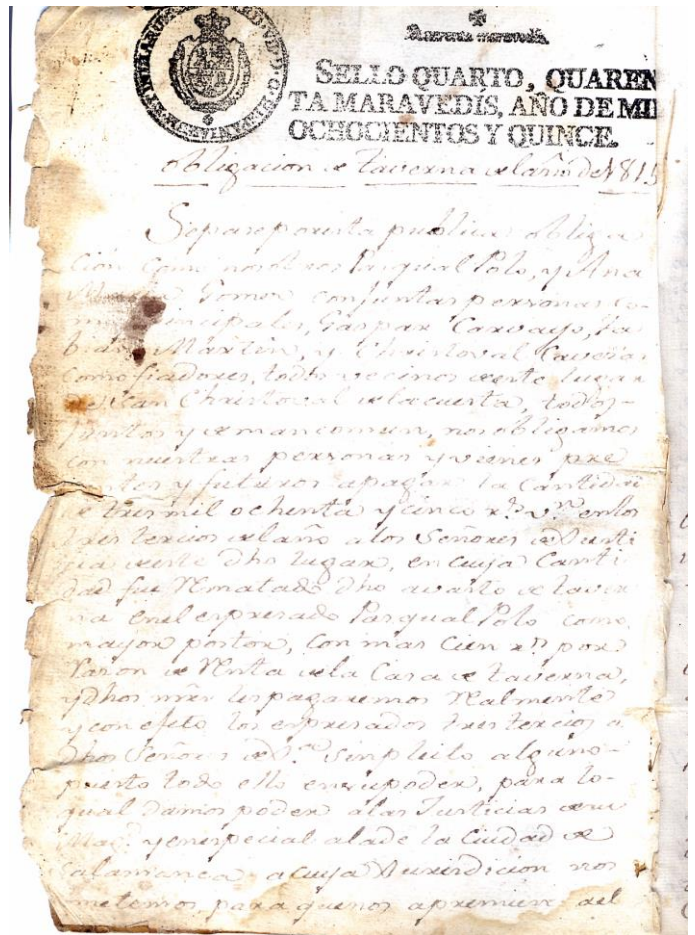 Quarenta maravedis.
SELLO QUARTO, QUAREN
TA MARAVEDÍS, AÑO DE MIL
OCHOCIENTOS Y QUINCE.
obligacion de taverna del año de 1815
Sepase por esta publica obliga
cion como nosotros Pasqual Polo, y Ana
Gomez conjuntas personas co-
principales, Gaspar Carvayo,
Martin, y Christoval
como fiadores, todos vecinos de este lugar
de San Christoval de la cuesta, todos
juntos y de mancomun, nos obligamos
con nuestras personas y vienes pre
sentes y futuros a pagar la cantidad
de tres mil ochenta y cinco rs. vn. en los
tres tercios del año a los Señores de Justi
cia de este dho lugar, en cuya canti
dad fue Rematado dho avasto de taver
na en el expresado Pasqual Polo como
mayor postor, con mas cien rs. por
Razon de Renta de la Casa de taverna,
y dhos mrs les pagaremos Realmente
y con efeto los expresados tres tercios a
dhos Señores de Jus.ª sin pleito alguno
puesto todo ello en su poder, para lo
qual damos poder a las Justicias de su
Mag.d y en especial a la de la Ciudad de
Salamanca a cuya Jurisdicion nos
sometemos para que nos apremien del